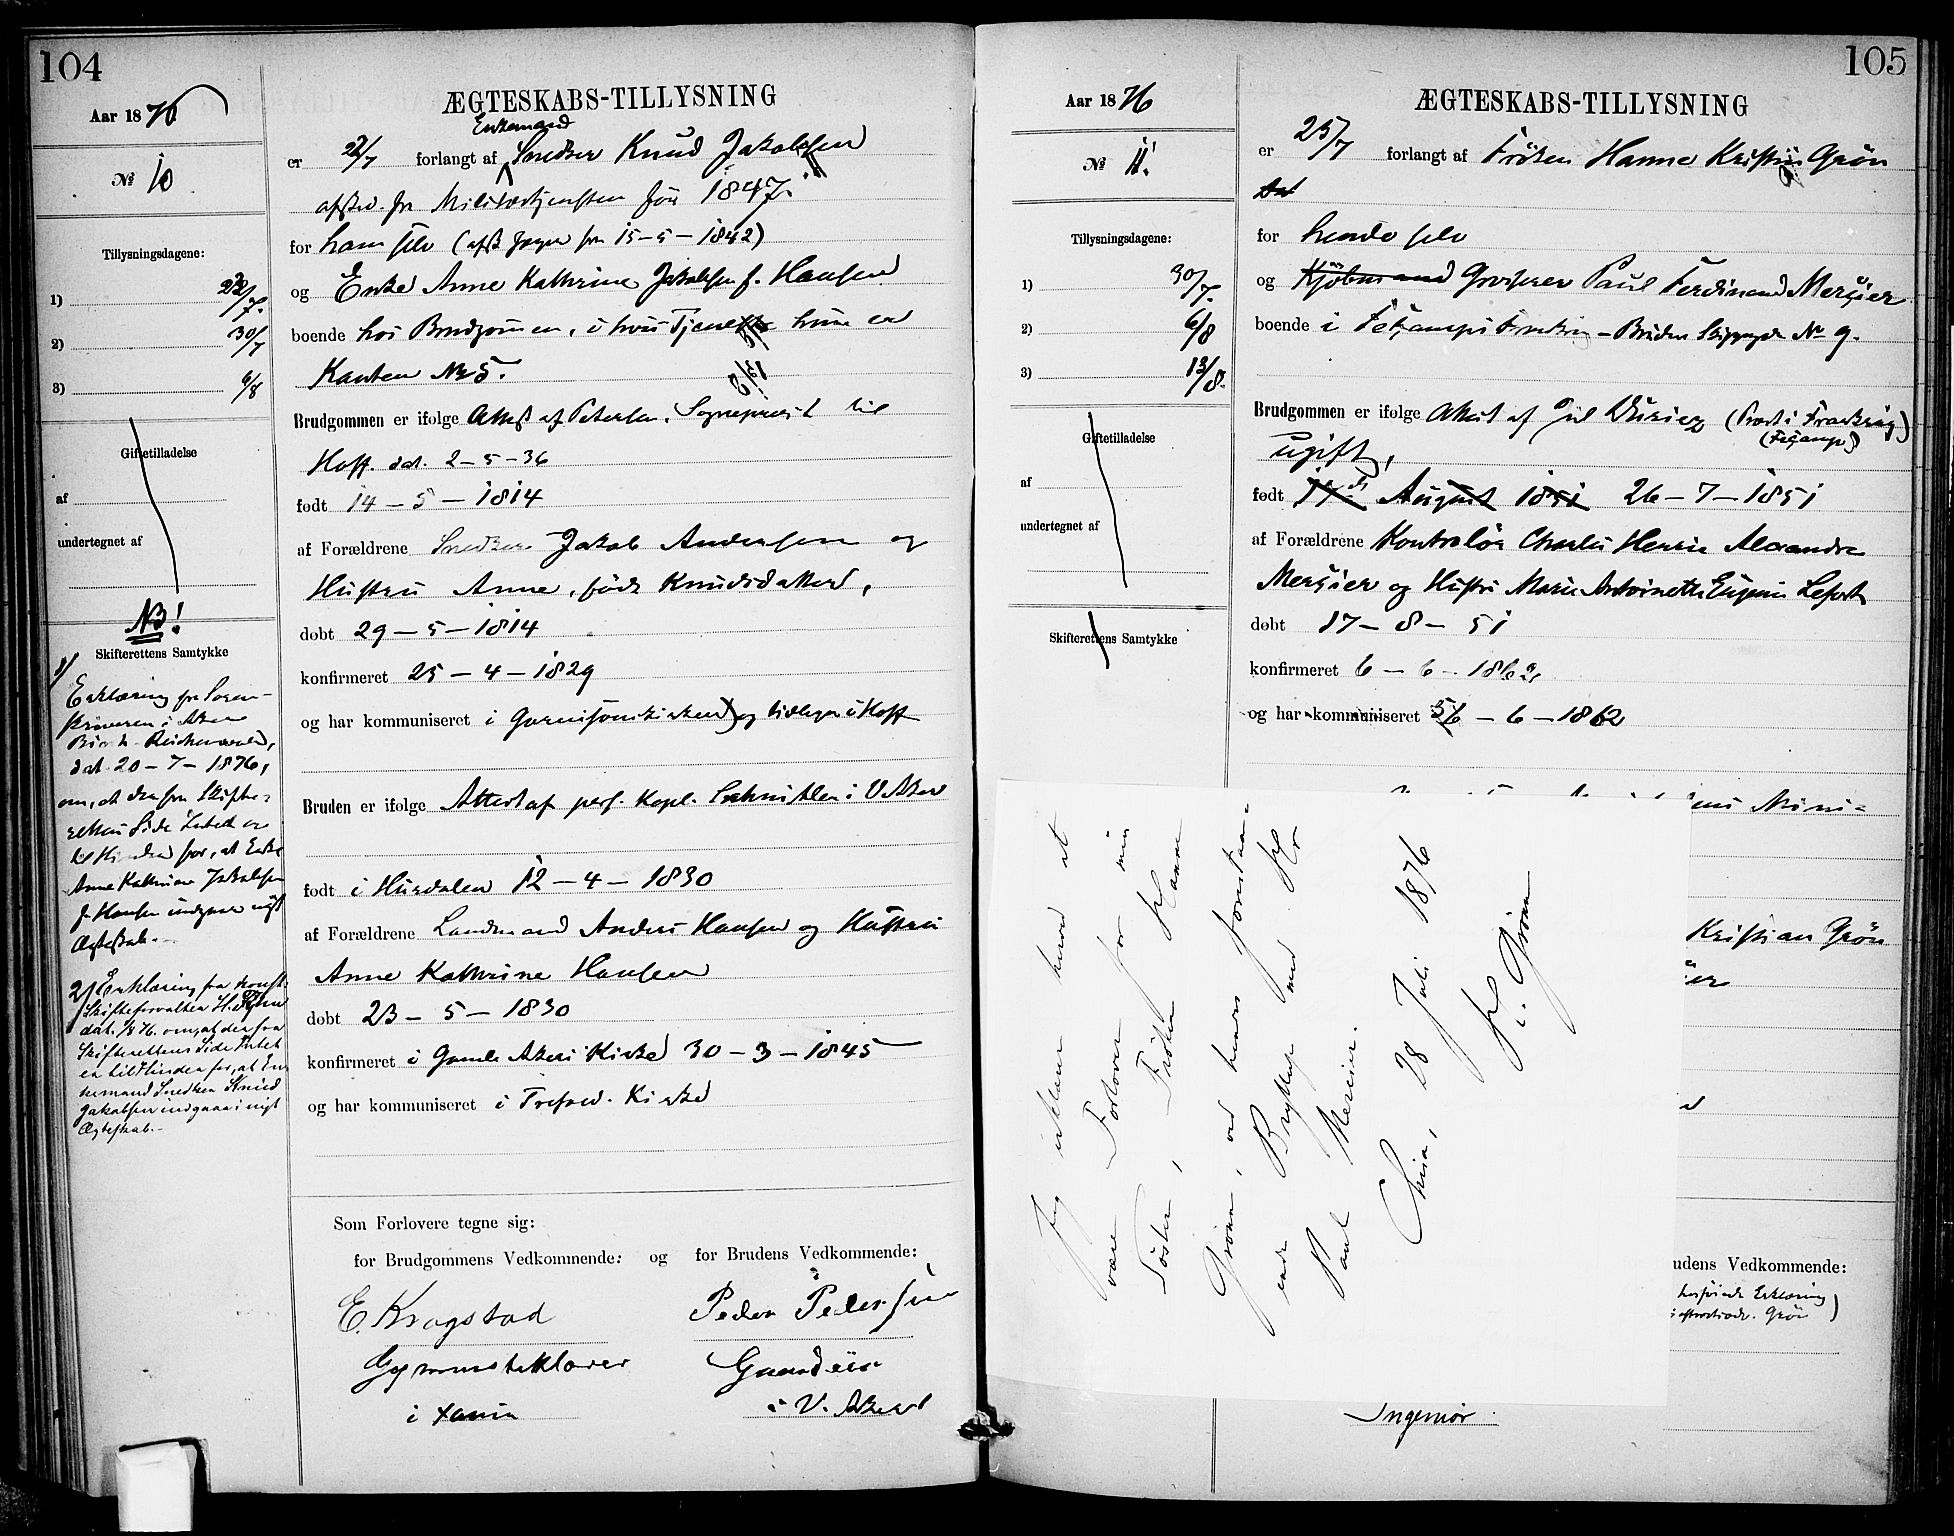 104
Aar 1876
ÆGTESKABS-TILLYSNING
№ 10
Enkemand
er 22/7 forlangt af Snedker Knud Jakobsen
afsked. fra Militærtjenesten før 1847.
for ham selv (afsk Jæger fra 15-5-1842)
og Enke Anne Kathrine Jakobsen f. Hansen
boende hos Brudgommen, i hvis Tjeneste hun er
Kanten № 5.
Tillysningsdagene:
1) 23/7.
2) 30/7
3) 6/8
Giftetilladelse
af
undertegnet af
NB!
Skifterettens Samtykke
1/ Erklæring fra Soren-
skriveren i Aker
Birch-Reichenwald,
dat. 20-7-1876,
om, at der fra Skifte-
rettens Side Intet er
til Hinder for, at Enke
Anne Kathrine Jakobsen
f. Hansen indgaar nyt
Ægteskab.-
2/ Erklæring fra konst.
Skifteforvalter H.
dat. 1/8 76. om, at der fra
Skifterettens Side Intet
er til Hinder for, at En-
kemand Snedker Knud
Jakobsen indgaar i nyt
Ægteskab.-
Brudgommen er ifølge Attest af Petersen, Sogneprest til
Hoff. dat. 2-5-36
født 14-5-1814
af Forældrene Snedker Jakob Andersen og
Hustru Anne, født Knudsdatter,
døbt 29-5-1814
konfirmeret 25-4-1829
og har kommuniseret i Garnisonskirken og tidligere i Hoff
Bruden er ifølge Attest af pers. Kapl. i V. Aker
født i Hurdalen 12-4-1830
af Forældrene Landmand Anders Hansen og Hustru
Anne Kathrine Hansen
døbt 23-5-1830
konfirmeret i Gamle Akers Kirke 30-3-1845
og har kommuniseret i Trefold. Kirke
Som Forlovere tegne sig:
for Brudgommens Vedkommende: og for Brudens Vedkommende:
E. Krogstad
Peder Pedersen
Gymnastiklærer
Gaardeier
i Xania
i V. Aker
105
Aar 1876
ÆGTESKABS-TILLYSNING
№ 11.
er 25/7 forlangt af Frøken Hanne Kristine Grøn
for hende selv
og Kjøbmand Grosserer Paul Ferdinand Mersier
boende i Fecamp i Frankrig - Bruden Skippergd № 9.
Tillysningsdagene:
1) 30/7.
2) 6/8
3) 13/8.
Giftetilladelse
af
undertegnet af
Skifterettens Samtykke
Brudgommen er ifølge Attest af (Prest i Frankrig)
(Fecamp)
ugift,
født August 1851 26-7-1851
af Forældrene Kontrolør Charles Henrie Alexandre
Mersier og Hustru Marie Antoinette Eugenie Lefort
døbt 17-8-51
konfirmeret 6-6-1862
og har kommuniseret 6-6-1862
Mini-
Kristian Grøn
Jeg erklærer herved at
være Forlover for min
Søster, Frøken Hanne
Grøn, ved hendes forestaa-
ende Bryllup med Hr
Paul Mercier.
Chria, 28 Juli 1876
H. Grøn
udens Vedkommende:
Erklæring
Grøn)
Ingeniør